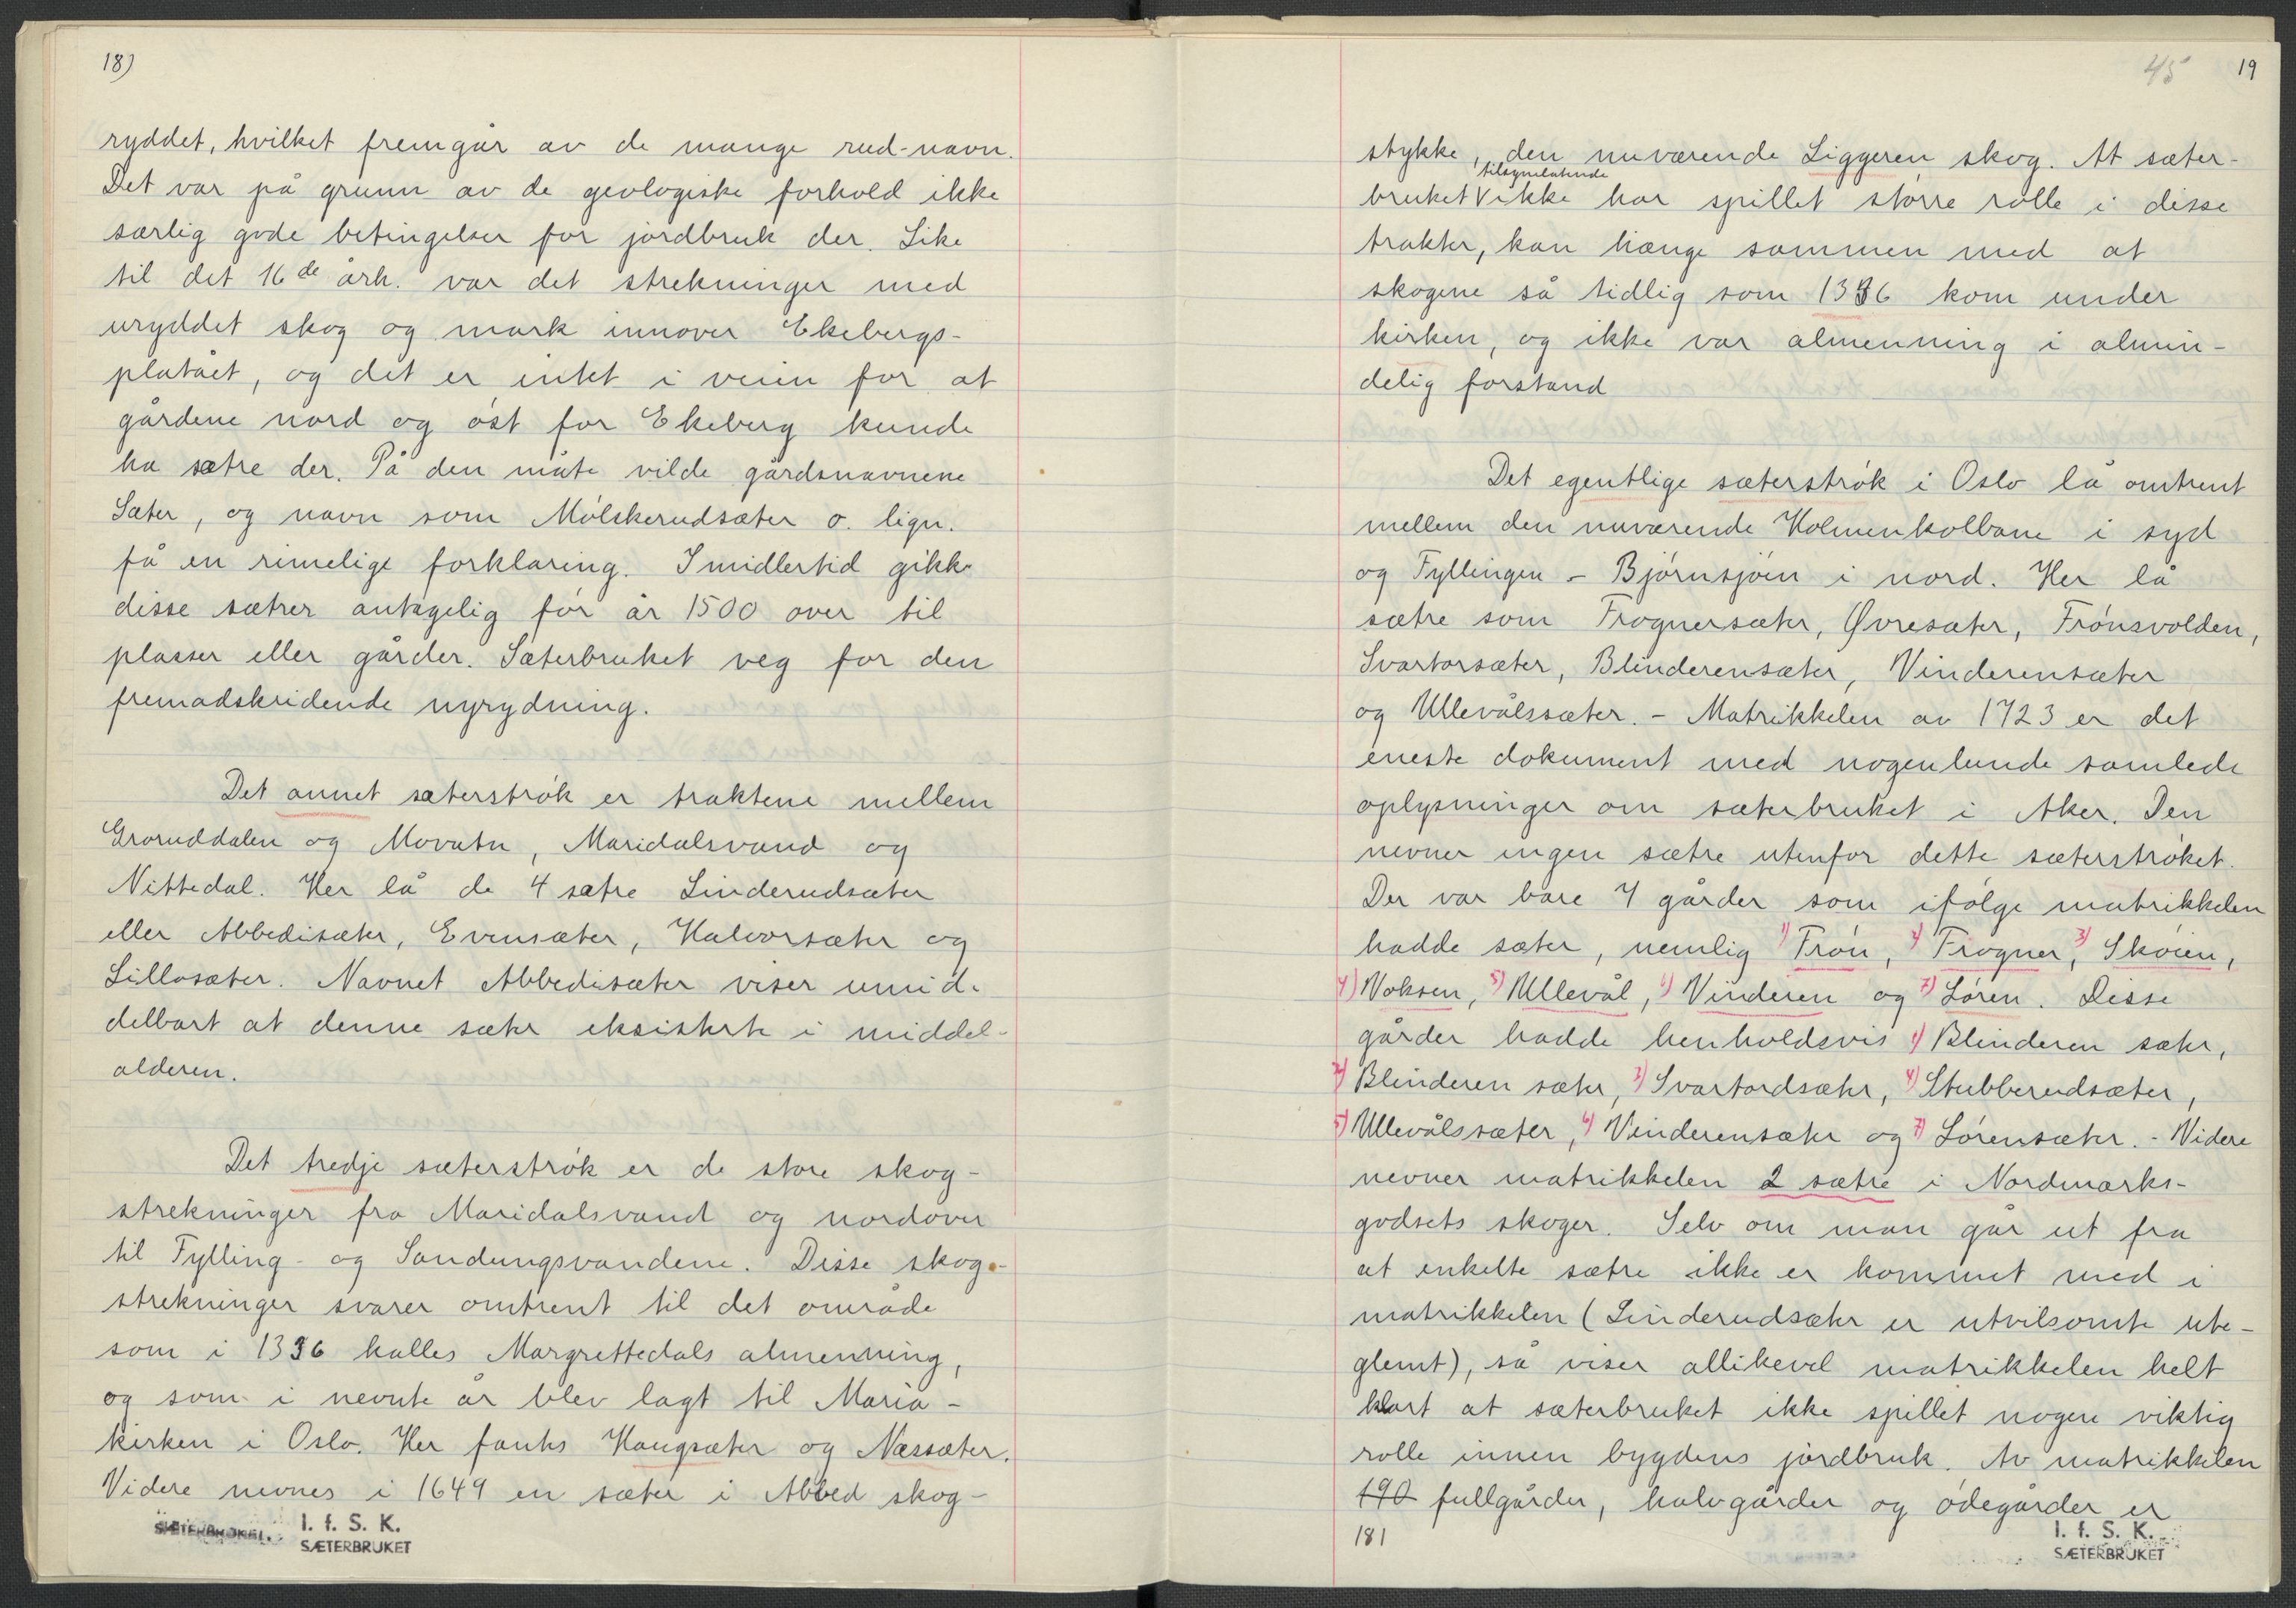 18)
ryddet, hvilket fremgår av de mange rud-navn.
Det var på grunn av de geologiske forhold ikke
særlig gode betingelser for jordbruk der. Like
til det 16de årh. var det strekninger med
uryddet skog og mark innover Ekebergs-
platået, og det er intet i veien for at
gårdene nord og øst for Ekeberg kunde
ha sætre der. På den måte vilde gårdsnavnene
Sæter, og navn som Mølskerudsæter o. lign.
få en rimelige forklaring. Imidlertid gikk
disse sætrer antagelig før år 1500 over til
plasser eller gårder. Sæterbruket veg for den
fremadskridende nyrydning.
Det annet sæterstrøk er traktene mellem
Groruddalen og Movatn, Maridalsvand og
Nittedal. Her lå de 4 sætre Linderudsæter
eller Abbedisæter, Evensæter, Halvorsæter og
Lillosæter. Navnet Abbedisæter viser umid-
delbart at denne sæter eksisterte i middel-
alderen.
Det tredje sæterstrøk er de store skog-
strekninger fra Maridalsvand og nordover
til Fylling- og Sandungsvandene. Disse skog-
strekninger svarer omtrent til det område
som i 1336 kalles Margrettedals almenning,
og som i nevnte år blev lagt til Maria-
kirken i Oslo. Her fantes Haugsæter og Næssæter.
Videre nevnes i 1649 en sæter i Abbed skog-
SÆTERBRUKET.
I. f. S. K.
SÆTERBRUKET
45 19
stykke, den nuværende Liggeren skog. At sæter-
tilsynelatende
bruket V ikke har spillet større rolle i disse
trakter, kan hænge sammen med at
skogene så tidlig som 1336 kom under
kirken, og ikke var almenning i almin-
delig forstand
Det egentlige sæterstrøk i Oslo lå omtrent
mellem den nuværende Holmenkolbane i syd
og Fyllingen - Bjørnsjøen i nord. Her lå
sætre som Frognersæter, Øvresæter, Frønsvolden,
Svartorsæter, Blinderensæter, Vinderensæter
og Ullevålssæter. - Matrikkelen av 1723 er det
eneste dokument med nogenlunde samlede
oplysninger om sæterbruket i Aker. Den
nevner ingen sætre utenfor dette sæterstrøket.
Der var bare 7 gårder som ifølge matrikkelen
hadde sæter, nemlig 1) Frøn, 2) Frogner, 3) Skøien,
4) Voksen, 5) Ullevål, 6) Vinderen og 7) Løren. Disse
gårder hadde henholdsvis 1) Blinderen sæter,
2) Blinderen sæter, 3) Svartordsæter, 4) Stubberudsæter,
5) Ullevålssæter, 6) Vinderensæter og 7) Lørensæter. - Videre
nevner matrikkelen 2 sætre i Nordmarks-
godsets skoger. Selv om man går ut fra
at enkelte sætre ikke er kommet med i
matrikkelen (Linderudsæter er utvilsomt ute-
glemt), så viser allikevel matrikkelen helt
klart at sæterbruket ikke spillet nogen viktig
rolle innen bygdens jordbruk. Av matrikkelen
190 fullgårder, halvgårder og ødegårder er
181
I. f. S. K.
SÆTERBRUKET